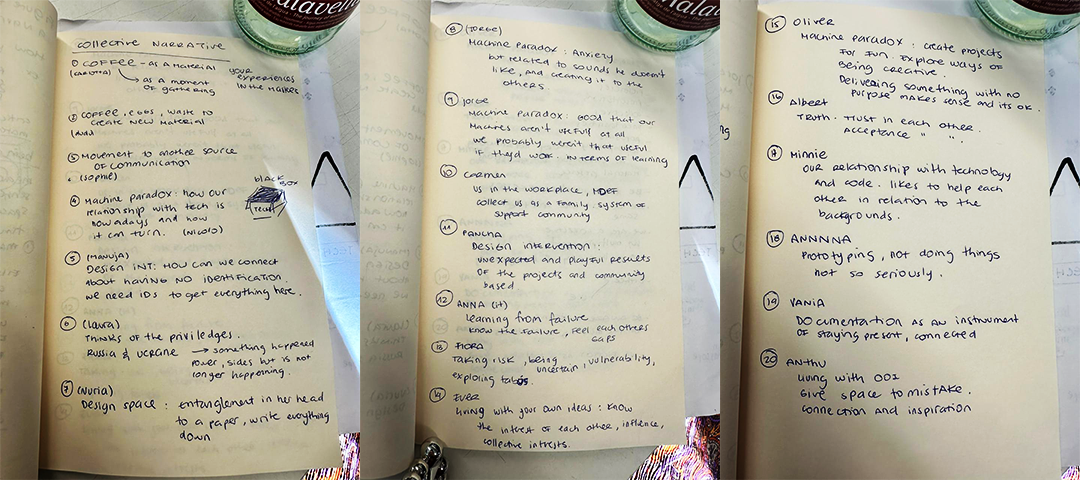 alavella
COLLECTIVE NARRATIVE
① COFFEE - as a material
(CARLOTTA)
as a moment
of gathering
YOUR
EXPERIENCES
IN THE MAKES
② COFFEE, EGGS, waste to
create new material
③ Movement to another source
of communication
(SOPHIE)
④ Machine paradox: how our
relationship with tech is
nowadays and how
it can turn. (NICOLO)
black
BOX
TRUST
⑤ (MANUJA)
DESIGN INT: HOW CAN WE CONNECT
about HAVING NO IDENTIFICATION.
we need IDs to get everything here.
⑥ (Laura)
THINKS OF the PRIVILEDGES.
RUSSIA & UCRAINE → something happened
POWER, sides but is not
longer happening.
⑦ (NURIA)
Design space: entanglement in her head
to a paper, write everything
down
⑧ (JORGE)
Machine paradox: Anxiety
but related to sounds he doesn't
like, and creating it to the
others.
⑨ Jorge
Machine paradox: Good that our
machines aren't usefull at all
we probably weren't that useful
if they'd work. IN terms of learning
⑩ CARMEN
us in the workplace, MDEF
collect us as a Family. System of
support community
⑪ PANCHA
DESIGN INTERVENTION:
UNEXPECTED and playful results
OF the projects and community
based
⑫ ANNA (it)
learning from failure
know the failure, feel each others
gaps
⑬ FIORA
Taking risk, being uncertain, vulnerability,
exploring tabos.
⑭ EVER
living with your own ideas: know
the intrest of each other, inflence,
collective intrests.
⑮ Oliver
Machine paradox: create projects
FOR FUN. EXPLORE ways OF
Being creative.
Delivering something with no
purpose makes sense and its ok.
⑯ Albert
TRUTH. TRUST in each other.
Acceptance " "
Minnie
OUR relationship with technology
and code. likes to help each
other in relation to the
backgrounds.
⑱ ANNNNA
Prototyping, not doing things
not so seriously.
⑲ VANIA
DOcumentation AS an instrument
OF staying present, connected
⑳ ANTHU
living with OO1
GIVE space to mistAKE.
connection and inspiration